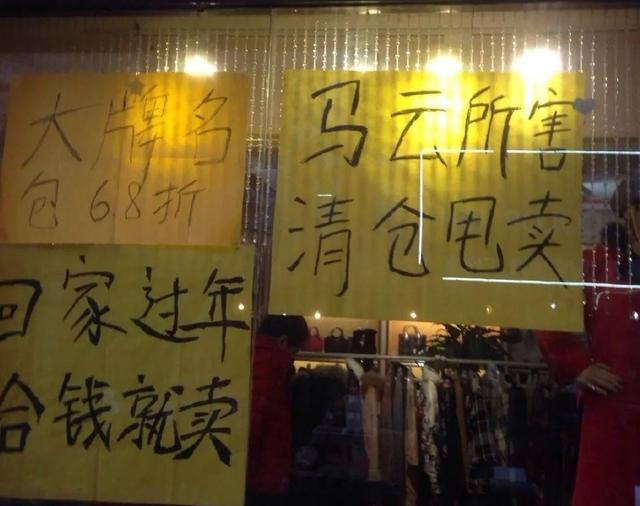 大牌名
包 6.8折
马云所害
清仓甩卖
回家过年
给钱就卖